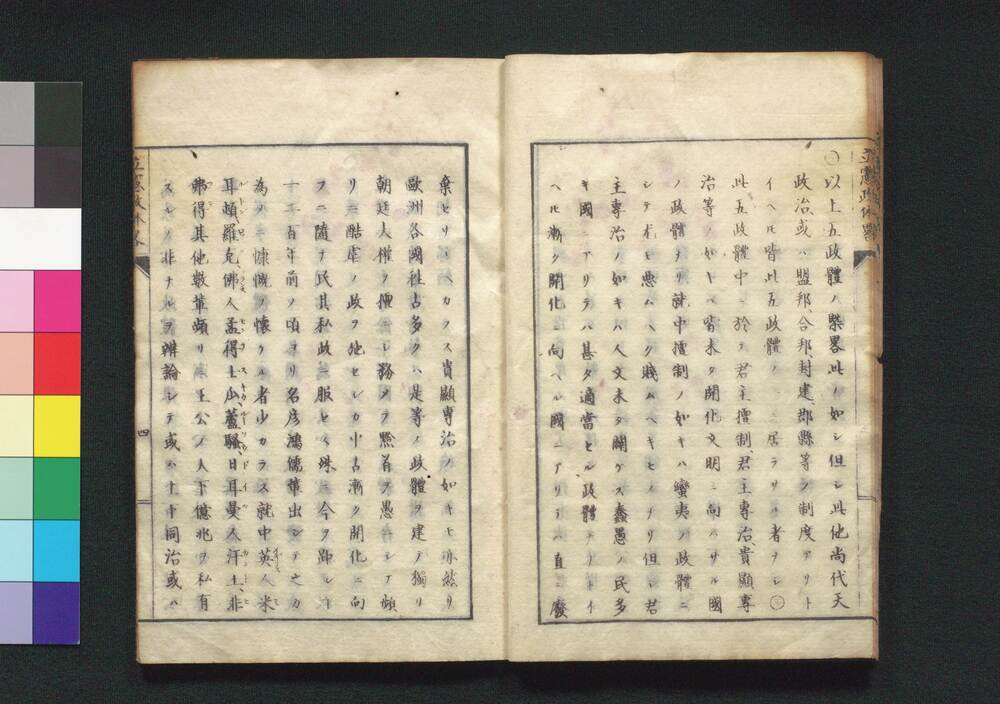 立憲政体略
○以上五政體ハ槩畧此ノ如シ但シ此他尚代天
政治或ハ盟邦、合邦、封建、郡縣等ノ制度アリト
イヘ𪜈皆此五政體ノ一ニ居ラサル者ナシ○
此五政體中ニ於テ君主擅制、君主專治、貴顯專
治等ノ如キハ皆未タ開化文明ニ向ハサル國
ノ政體ナリ就中擅制ノ如キハ蠻夷ノ政體ニ
シテ尤モ悪ムヘク賤ムヘキモノナリ但シ君
主專治ノ如キハ人文未タ闢ケス蠢愚ノ民多
キ國ニアリテハ甚タ適當セル政體ナリトイ
ヘ𪜈漸ク開化ニ向ヘル國ニアリテハ直ニ廢
棄セサルヘカラス貴顯専治ノ如キモ亦然リ
歐洲各國往古多クハ是等ノ政體ヲ建テ獨リ
朝廷人權ヲ擅ニシ務メテ黔首ヲ愚ニシテ頻
リニ酷虐ノ政ヲ施セシカ中古漸ク開化ニ向
フニ隨テ民其私政ニ服セス殊ニ今ヲ距ルコト
一二百年前ノ頃ヨリ名彦鴻儒輩出シテ之カ
為メニ慷慨ヲ懐クル者少カラス就中英人米
耳頓、羅克、佛人孟得士瓜、蘆騷、日耳曼人汗土、非
弗得其他數輩頻リニ王公ノ人下億兆ヲ私有
スルノ非ナルヲ辨論シテ或ハ上下同治或ハ
立憲政体略
四